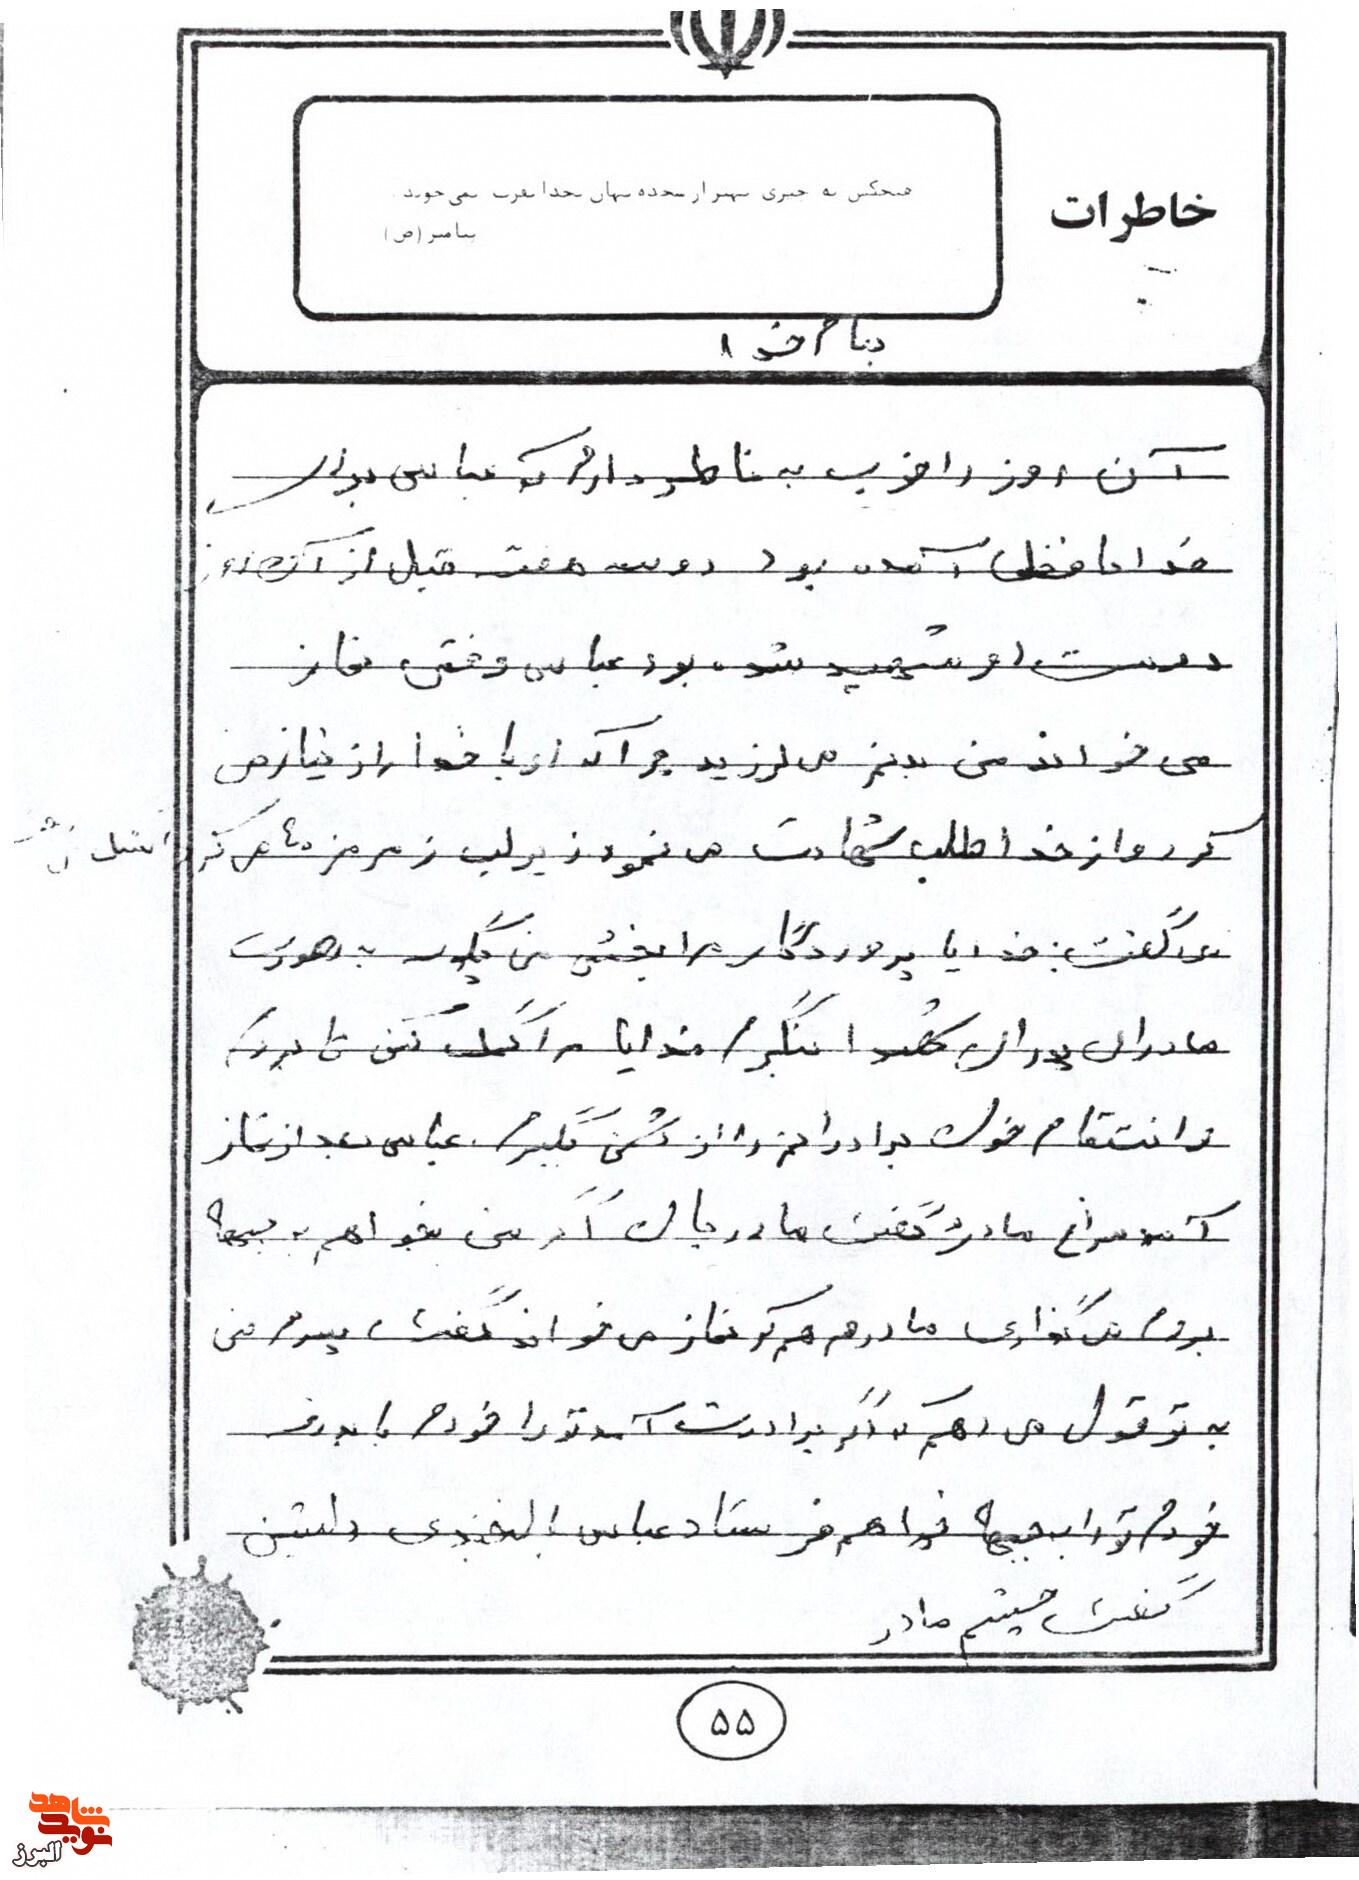 خاطرات
هیچکس به چیزی بهتر از سجده پنهان بخدا تقرب نمی جوید.
پیامبر (ص)
بنام خدا
آن روز را خوب به خاطر دارم که عباس برای
خداحافظی آمده بود دو سه هفته قبل از آن روز
دوست او شهید شده بود عباس وقتی نماز
می خواند من بدنم می لرزید چرا که او با خدا راز نیاز می
کرد و از خدا طلب شهادت می نمود زیر لب زمزمه های می کرد
گفت: خدایا پروردگار مرا ببخش من چگونه به صورت
مادران پدران شهدا بنگرم خدایا مرا کمک کن تا بروم
و انتقام خون برادرانم را از دشمن بگیرم. عباس بعد از نماز
آمد سراغ مادرش گفت مادر جان اگر من بخواهم به جبهه
بروم می گذاری مادرم هم که نماز می خواند گفت، پسرم من
به تو قول می دهم که اگر برادرت آمد تو را خودم با بدرقه
خودم تو را به جبهه خواهم فرستاد عباس لبخندی دلنشین
گفت چشم مادر
۵۵
نوید شاهد
البرز